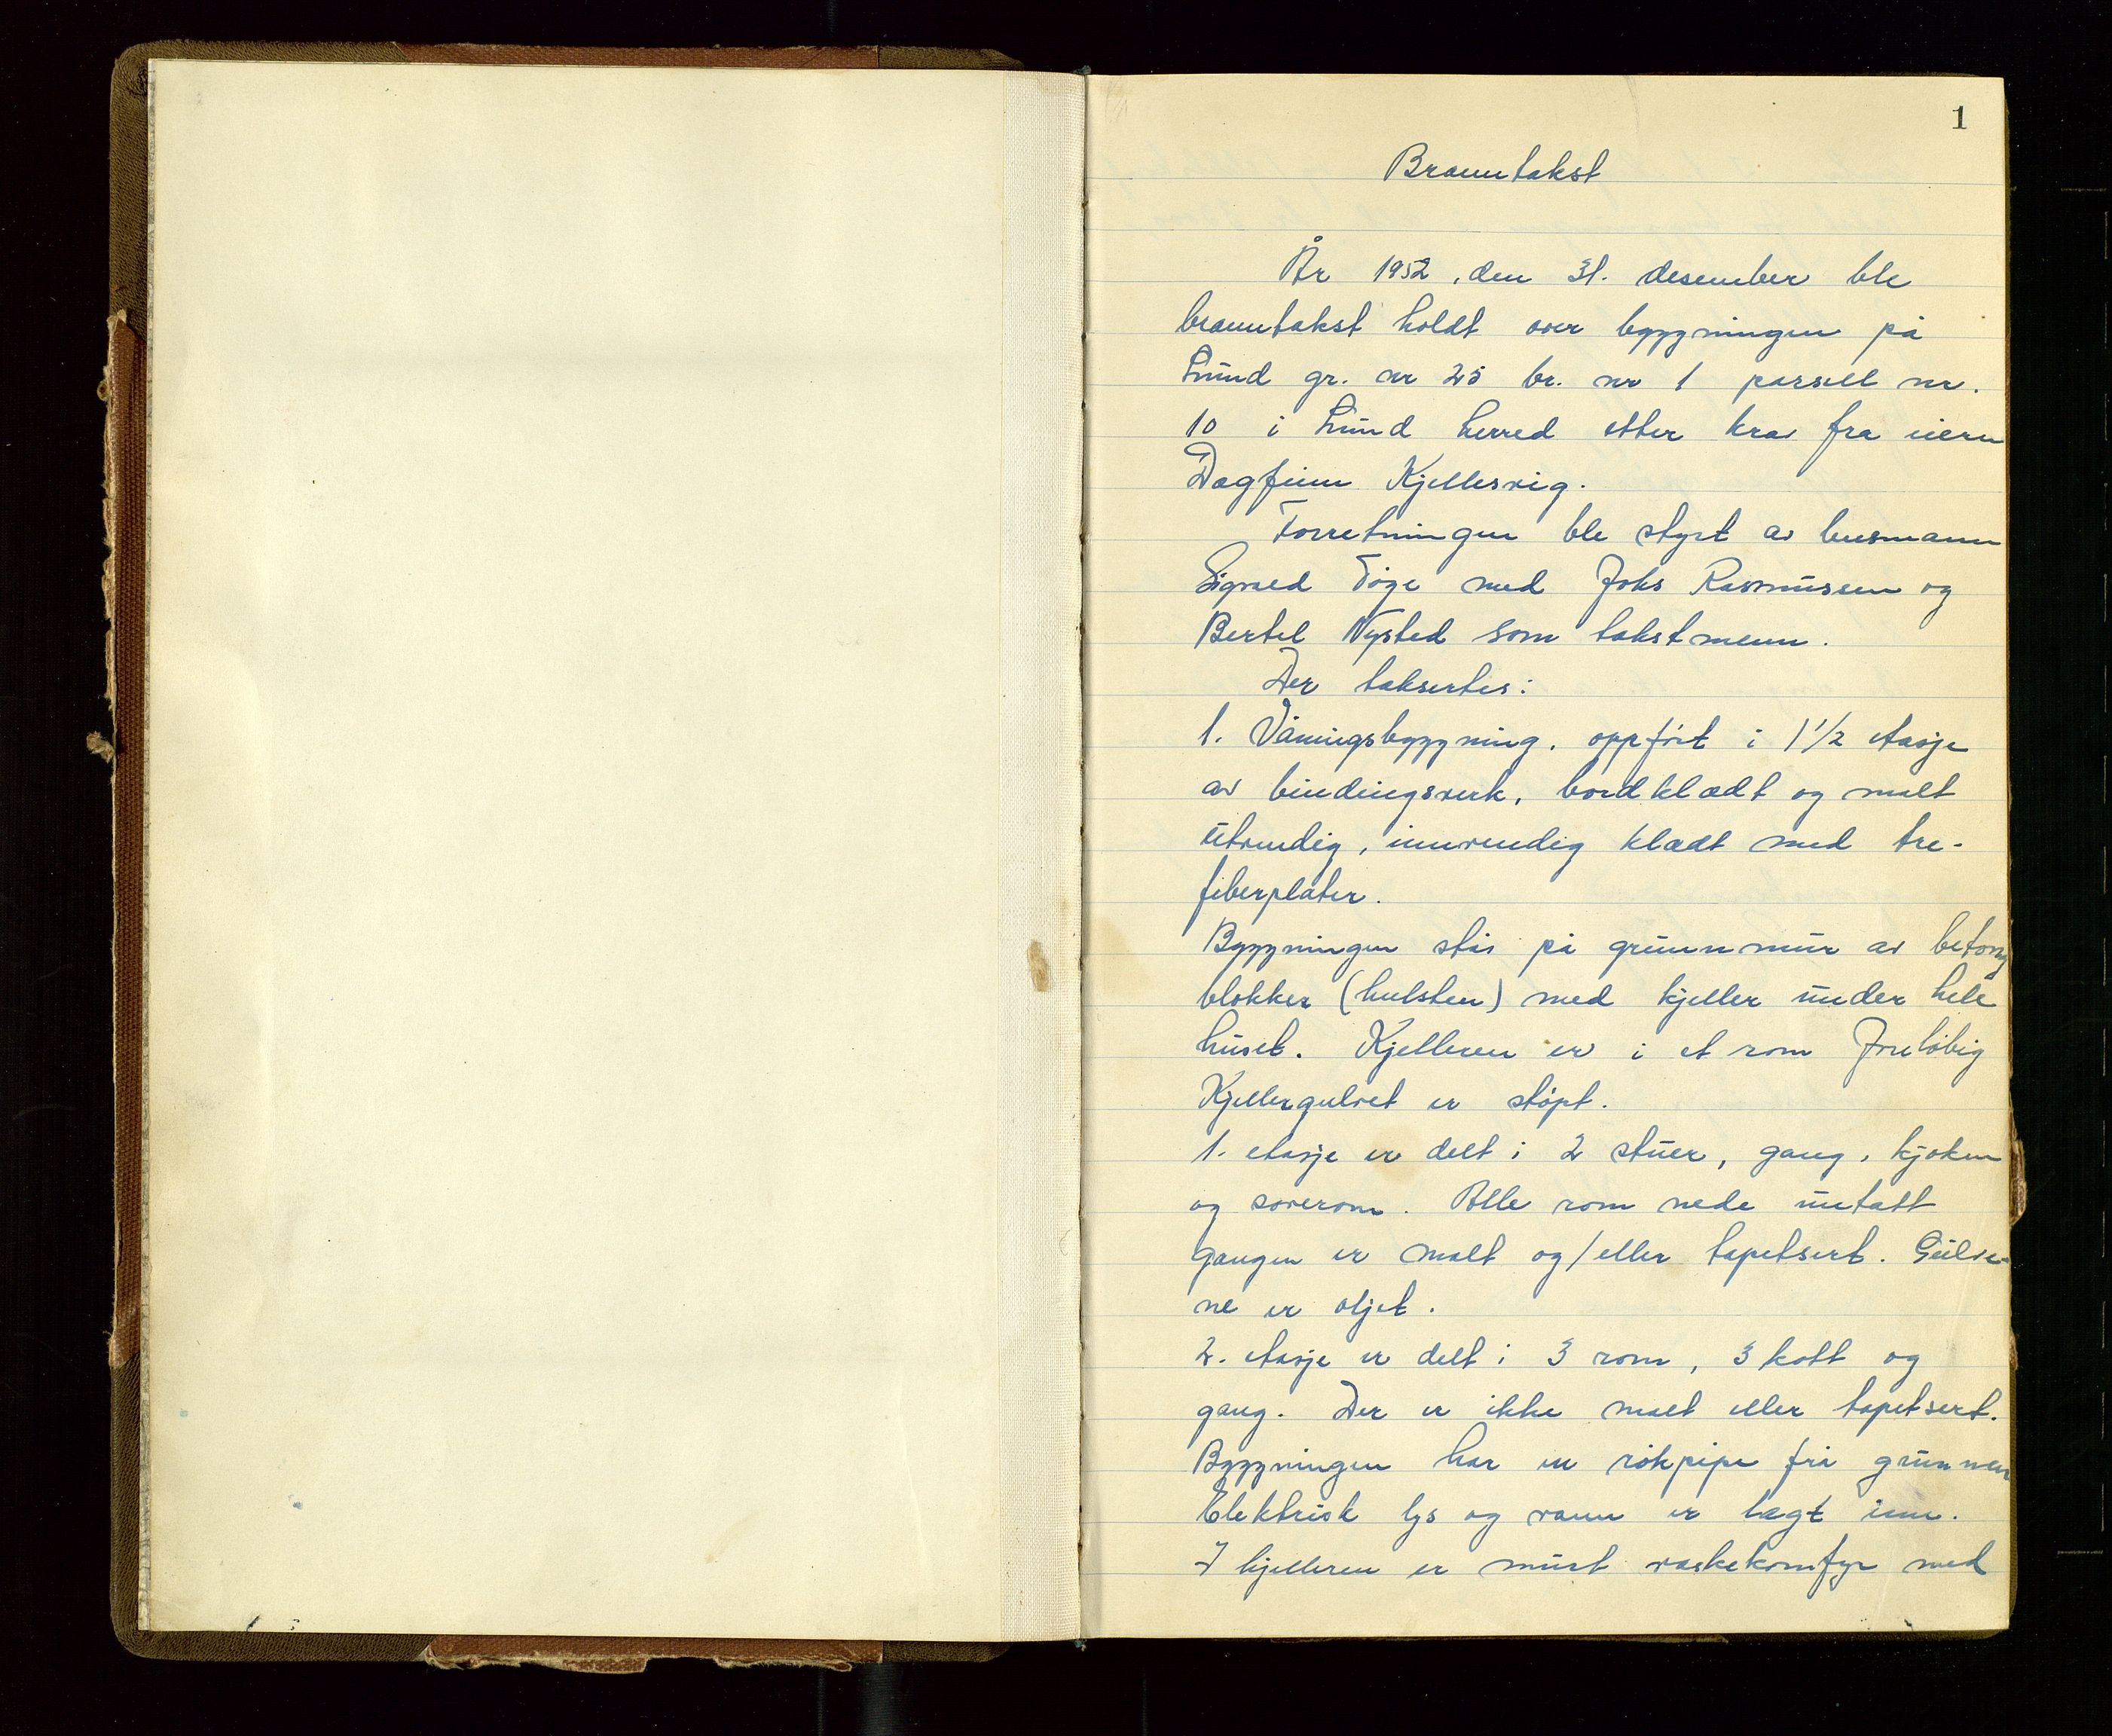 1
Branntakst
År 1952, den 31. desember ble
branntakst holdt over bygningen på
Lund gr. nr 25 br. nr 1 parsell nr.
10 i Lund herred etter krav fra eieren
Dagfinn Kjellesvig.
Forretningen ble styrt av lensmann
Sigvald Tøge med Johs Rasmussen og
Bertel Nysted som takstmenn.
Der taksertes:
1. Våningsbygning, oppført i 1 1/2 etasje
av bindingsverk, bordkledt og malt
utvendig, innvendig kledt med tre-
fiberplater.
Bygningen står på grunnmur av betong
blokker (hulsten) med kjeller under hele
huset. Kjelleren er i et rom foreløbig
Kjellergulvet er støpt.
1. etasje er delt i 2 stuer, gang, kjøken
og soverom. Alle rom nede untatt
gangen er malt og/eller tapetsert. Gulve-
ne er oljet.
2. etasje er delt i 3 rom, 3 kott og
gang. Der er ikke malt eller tapetsert.
Bygningen har en rökpipe frå grunnen
Elektrisk lys og vann er lagt inn.
I kjelleren er murt vaskekomfyr med